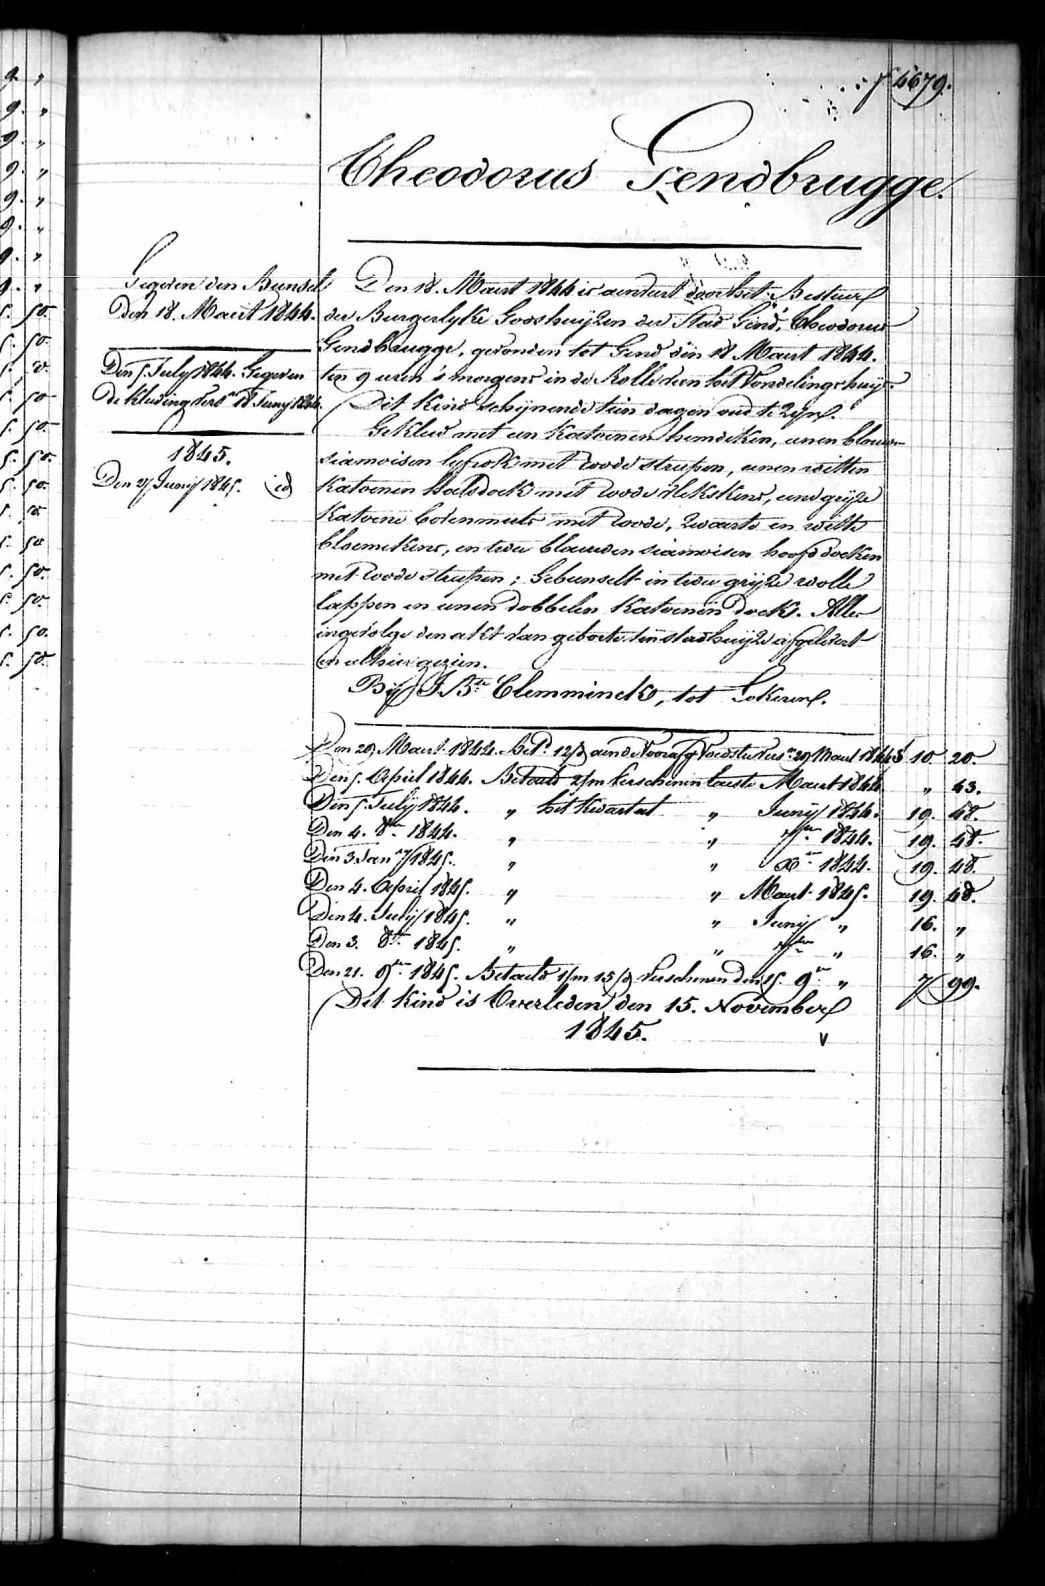 f 4679.
Theodorus Gendbrugge.
Gegeven den Bunsel
Den 18. Maert 1844.
Den 5. July 1844. Gegeven
de kleeding vers.n 18 Juny 1844.
1845.
Den 27 Junij 1845. id
Den 18. Maert 1844 is aenveert door het Bestuer
der Burgerlyke Godshuijzen der Stad Gend, Theodorus
Gendbrugge, gevonden tot Gend den 18 Maert 1844.
ten 9 uren 's morgens in de Rolle van het Vondelingshuijs
Dit Kind schijnende tien dagen oud te zijn.
Gekleed met een Katoenen hemdeken, eenen blauwen
siamoisen lyfrok met roode streepen, eenen witten
Katoenen halsdoek met roode vlekskens, eene grijze
Katoene bovenmuts met roode, zwarte en witte
bloemekens, en twee blauwen siamoisen hoofddoeken
met roode streepen; Gebunselt in twee grijze wolle
lappen en eenen dobbelen Katoenen doek. Alles
ingevolge den akt van geboorte ten stadhuijze afgelevert
en alhier gezien.
Bij J. B.te Clemminck, tot Lokeren.
Den 29 Maert 1844. Bet.d 12/d aen de Voorafg. Voedster vers.n 29 Maert 1844 10. 20.
Den 5. April 1844. Betaeld 2/m verschenen leste Maert 1844 " 43.
Den 5. July 1844. " het kwartael " Junij 1844. 19. 48.
Den 4. 8.ber 1844. " " 7.ber 1844. 19. 48.
Den 3 Jan.ry 1845. " " X.er 1844. 19. 48.
Den 4. April 1845. " " Maert 1845. 19. 48.
Den 4. Julij 1845. " " Junij " 16. "
Den 3. 8.ber 1845. " " 7.ber " 16. "
Den 21. 9.er 1845. Betaeld 1/m 15/d verschenen den 15. 9.er " 7 99.
Dit Kind is Overleden den 15. November
1845.
v